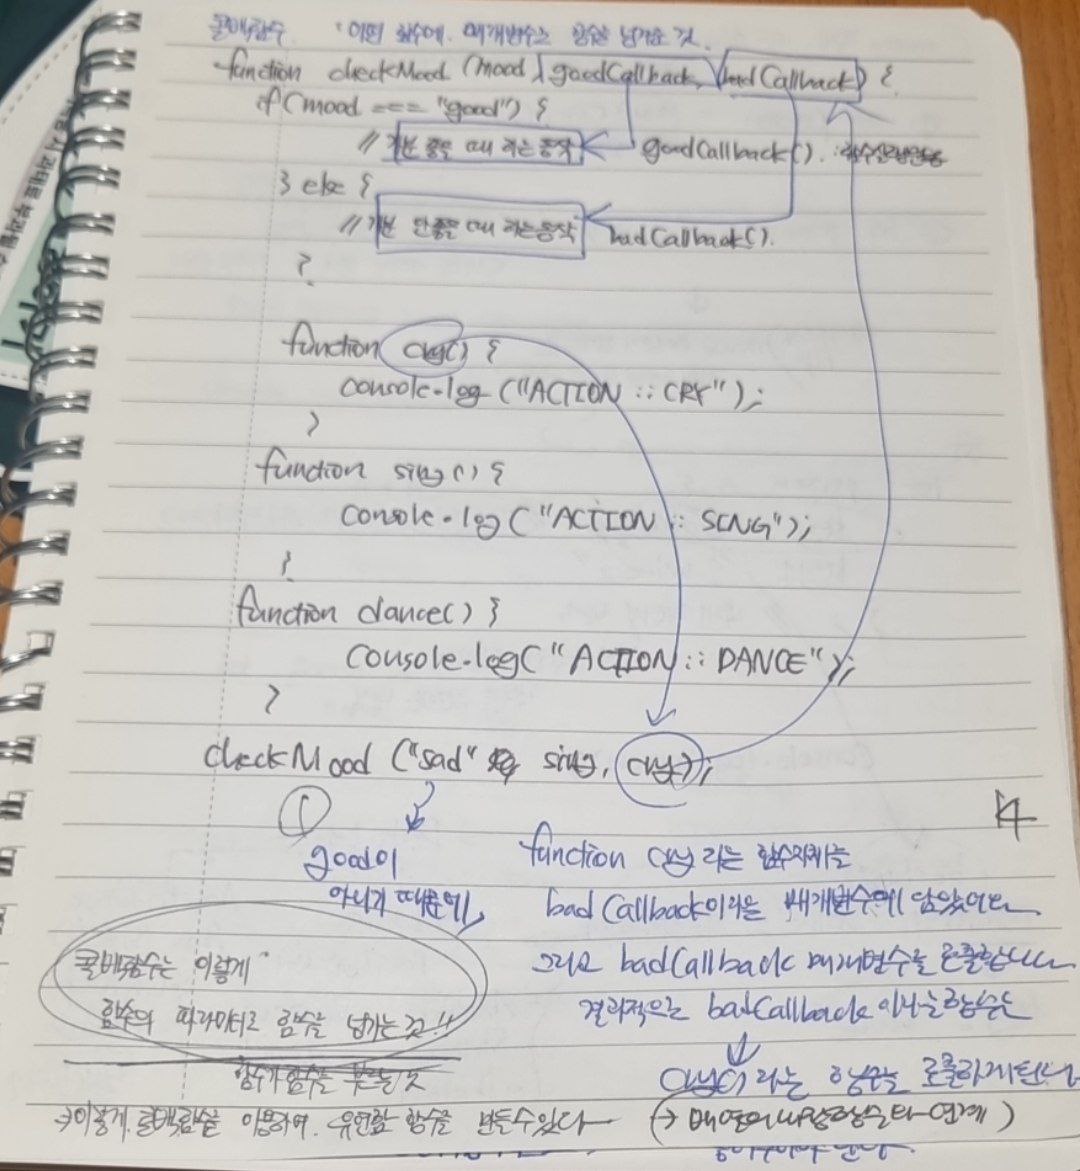 콜백함수. : 어떤 함수에. 매개변수로 함수를 넘겨준 것.
function checkMood (mood, goodCallback, badCallback) {
if (mood === "good") {
// 기분 좋을 때 하는 동작 goodCallback().
} else {
// 기분 안좋을 때 하는동작 badCallback().
}
function cry() {
console.log ("ACTION :: CRY");
}
function sing () {
console.log ("ACTION :: SING");
}
function dance() {
console.log("ACTION :: DANCE");
}
checkMood ("sad" sing, cry);
good이
아니기 때문에,
function cry 라는 함수자체는
badCallback이라는 매개변수에 담았어요
그리고 badCallback 매개변수를 호출합니다
결과적으로 badCallback 이라는 함수는
cry() 라는 함수를 호출하게된다
콜백함수는 이렇게
함수의 파라미터로 함수를 넘기는 것!!
함수가 함수를 부르는 것
→이렇게 콜백함수를 이용하여. 유연한 함수를 만들수있다